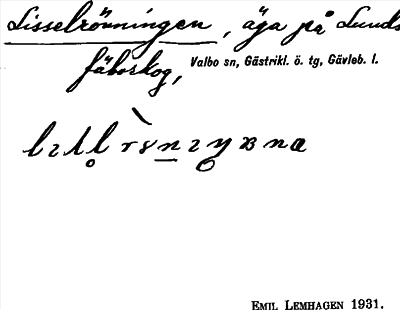 Lisselrönningen, äga på Lunds
fäboskog, Valbo sn, Gästrikl. ö. tg, Gävleb. l.
EMIL LEMHAGEN 1931.